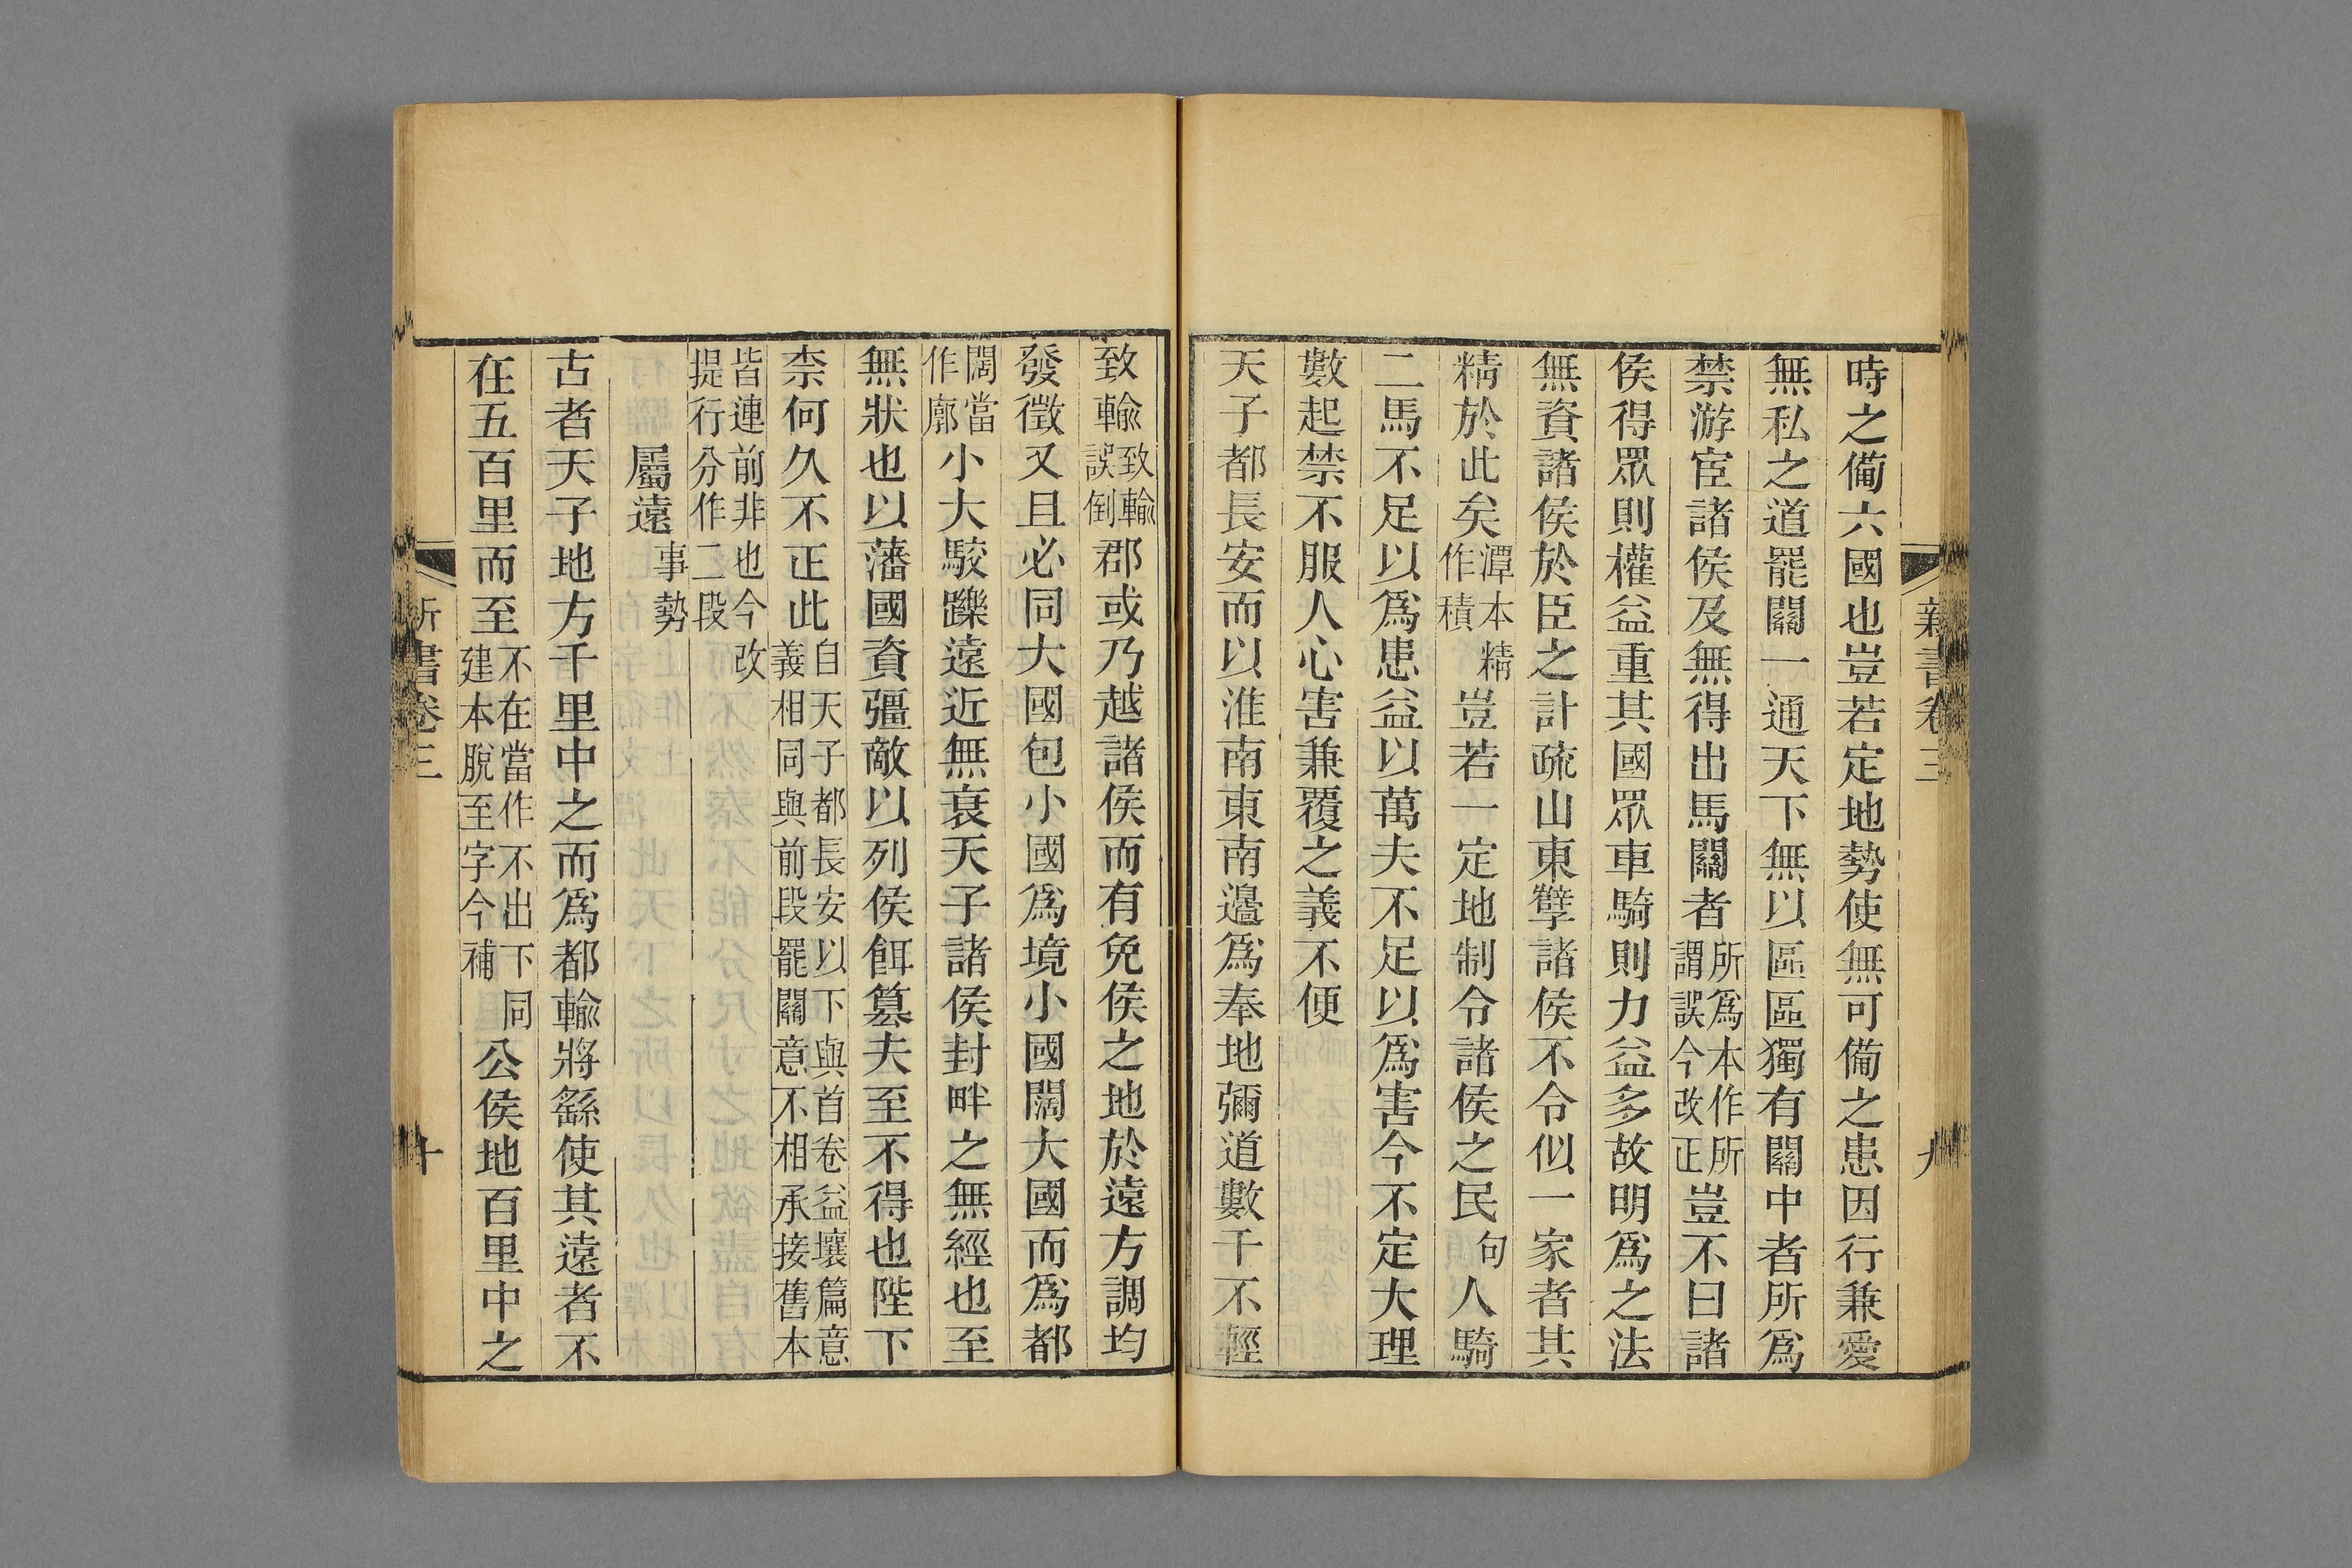 新書卷三
九
時之僃六國也豈若定地勢使無可僃之患因行兼愛
無私之道罷關一通天下無以區區獨有關中者所爲
禁游宦諸侯及無得出馬關者所爲本作所謂誤今改正豈不曰諸
侯得眾則權益重其國眾車騎則力益多故明爲之法
無資諸侯於臣之計疏山東孽諸侯不令似一家者其
精於此矣潭本精作積豈若一定地制令諸侯之民句人騎
二馬不足以爲患益以萬夫不足以爲害今不定大理
數起禁不服人心害兼覆之義不便
天子都長安而以淮南東南邉爲奉地彌道數千不輕
致輸致輸誤倒郡或乃越諸侯而有免侯之地於遠方調均
發徵又且必同大國包小國爲境小國闊大國而爲都
闊當作廓小大駁躒遠近無衰天子諸侯封畔之無經也至
無狀也以藩國資彊敵以列侯餌篡夫至不得也陛下
柰何久不正此自天子都長安以下與首卷益壤篇意義相同與前段罷關意不相承接舊本
皆連前非也今改提行分作二段
屬遠事勢
古者天子地方千里中之而爲都輸將繇使其遠者不
在五百里而至不在當作不出下同建本脫至字今補公侯地百里中之
新書卷三
十